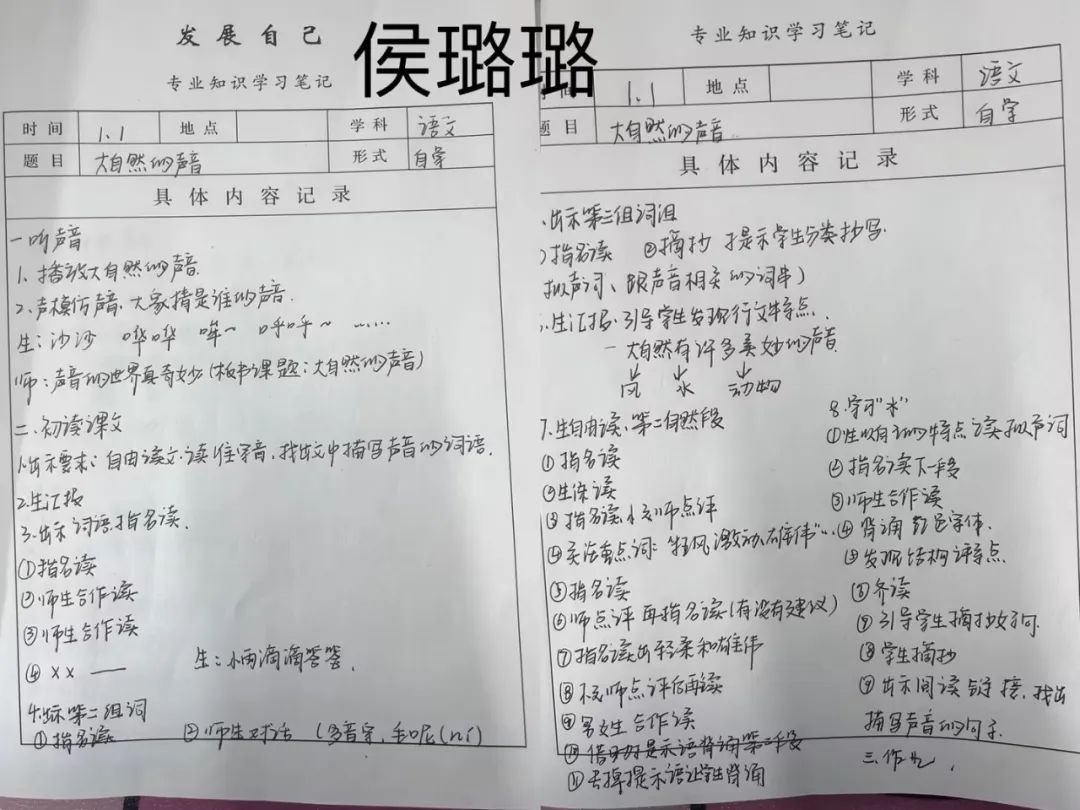 发展自己
侯璐璐
专业知识学习笔记
时间 1.1 地点 学科 语文
题目 大自然的声音 形式 自学
具体内容记录
一听声音
1、播放大自然的声音.
2、声模仿声音、大家猜是谁的声音.
生：沙沙 哗哗 哞~ 呼呼~ ……
师：声音的世界真奇妙(板书课题：大自然的声音)
二、初读课文
1.出示要求：自由读文.读准字音,找出文中描写声音的词语.
2.生汇报
3.出示词语.指名读.
①指名读
②师生合作读
③师生合作读
④ ×× —— 生：小雨滴滴答答.
4.出示第二组词
①指名读 ②师生对话 (多音字, 呢(ní)
专业知识学习笔记
间 1.1 地点 学科 语文
题目 大自然的声音 形式 自学
具体内容记录
、出示第三组词组
指名读 ②摘抄 提示学生分类抄写.
拟声词、跟声音相关的词串)
、生汇报.引导学生发现行文特点.
一 大自然有许多美妙的声音
↓ ↓ ↓
风 水 动物
7.生自由读、第二自然段
①指名读
②生练读
③指名读、师点评
④关注重点词："狂风、激动、雄伟"…
⑤指名读
⑥师点评 再指名读(有没有建议)
⑦指名读出轻柔和雄伟
⑧ 师点评后再读
⑨男女生合作读
⑩借 提示语背诵第二段
⑪去掉提示语让学生背诵
8.学习"水"
①生 的特点读拟声词
②指名读下一段
③师生合作读
④背诵 字体.
⑤发现结构 特点
⑥齐读
⑦引导学生摘抄好词.
⑧学生摘抄
⑨出示阅读链接，找出
描写声音的句子.
三.作业.